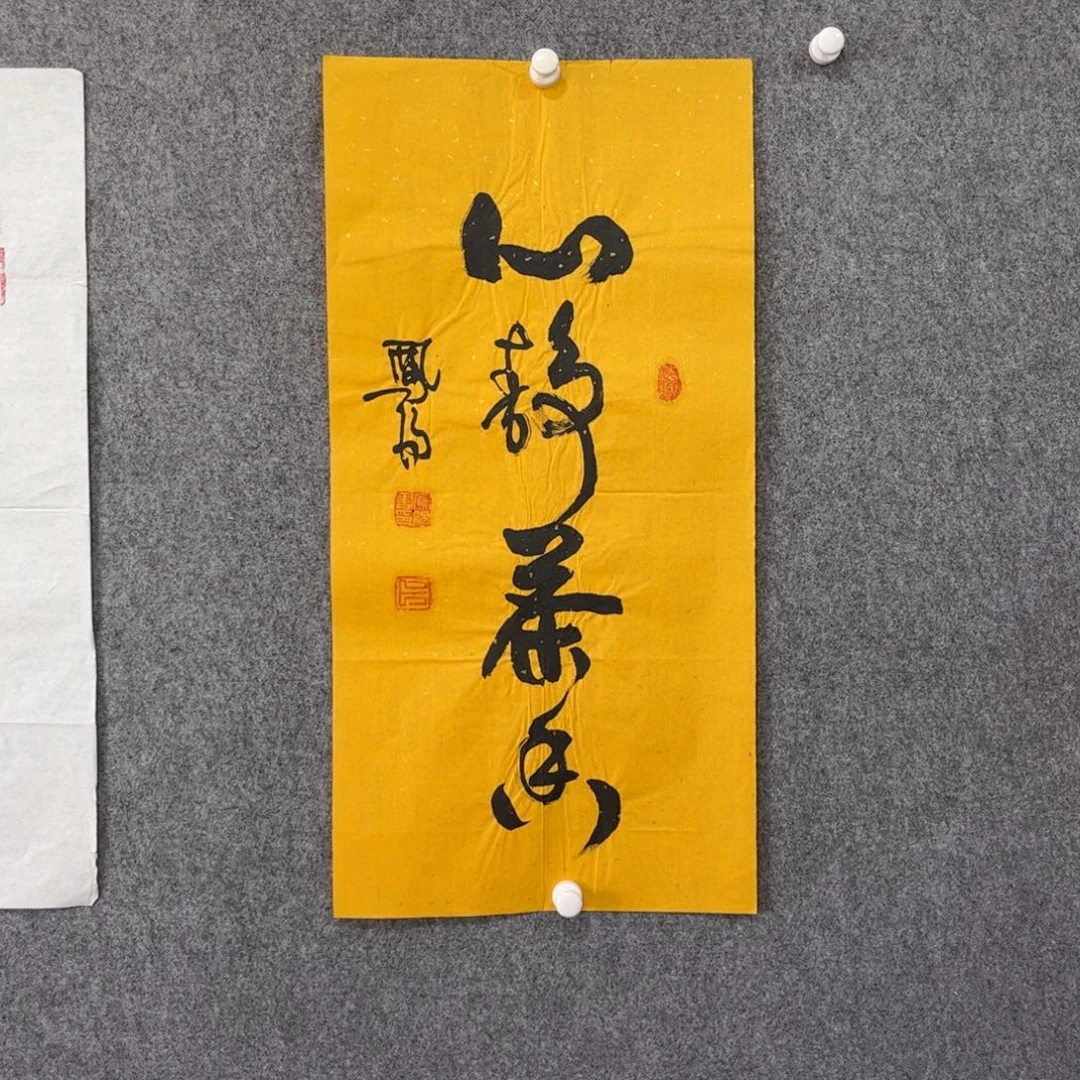 心静茶香
鳳